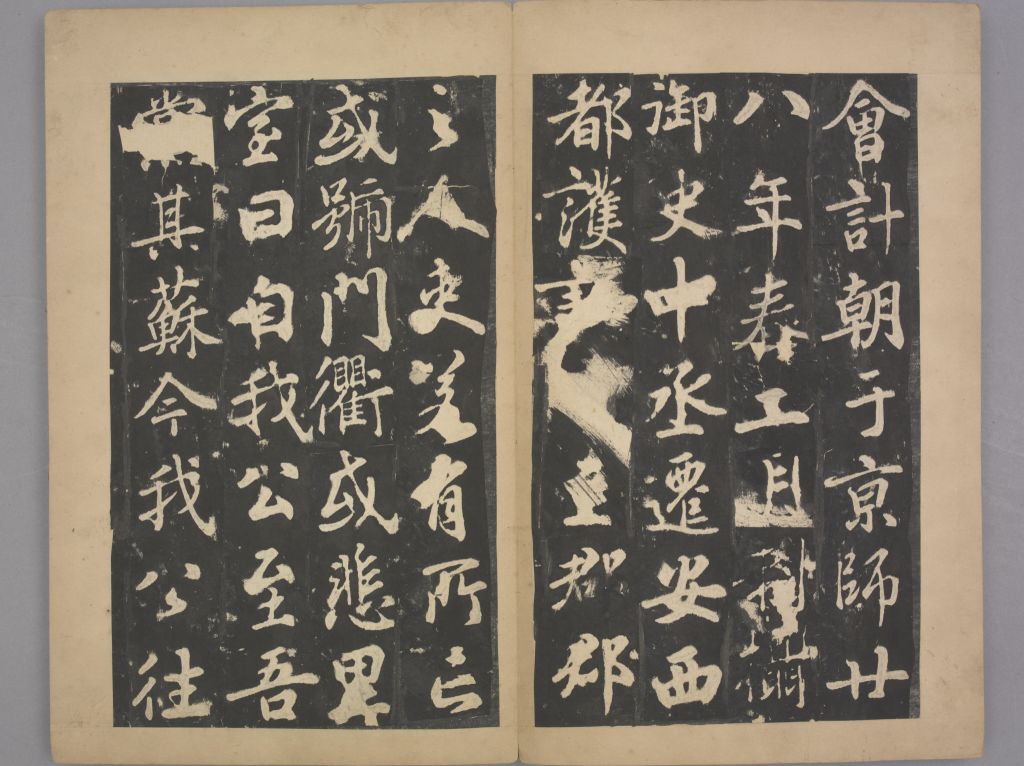 會計朝于京師廿
八年春正月制攝
御史中丞遷安西
都護在郡郡
之人吏若有所亡
或號門衢或悲畢
室曰自我公至吾
黨其蘇今我公往